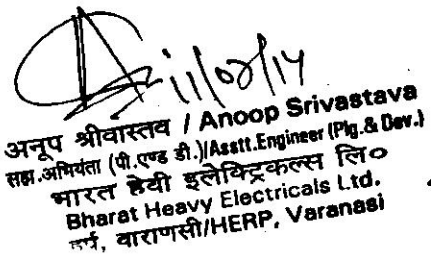 11/02/14
अनूप श्रीवास्तव / Anoop Srivastava
सहा.अभियंता (पी.एण्ड डी.)/Asstt.Engineer (Plg.& Dev.)
भारत हेवी इलेक्ट्रिकल्स लि०
Bharat Heavy Electricals Ltd.
वाराणसी/HERP, Varanasi